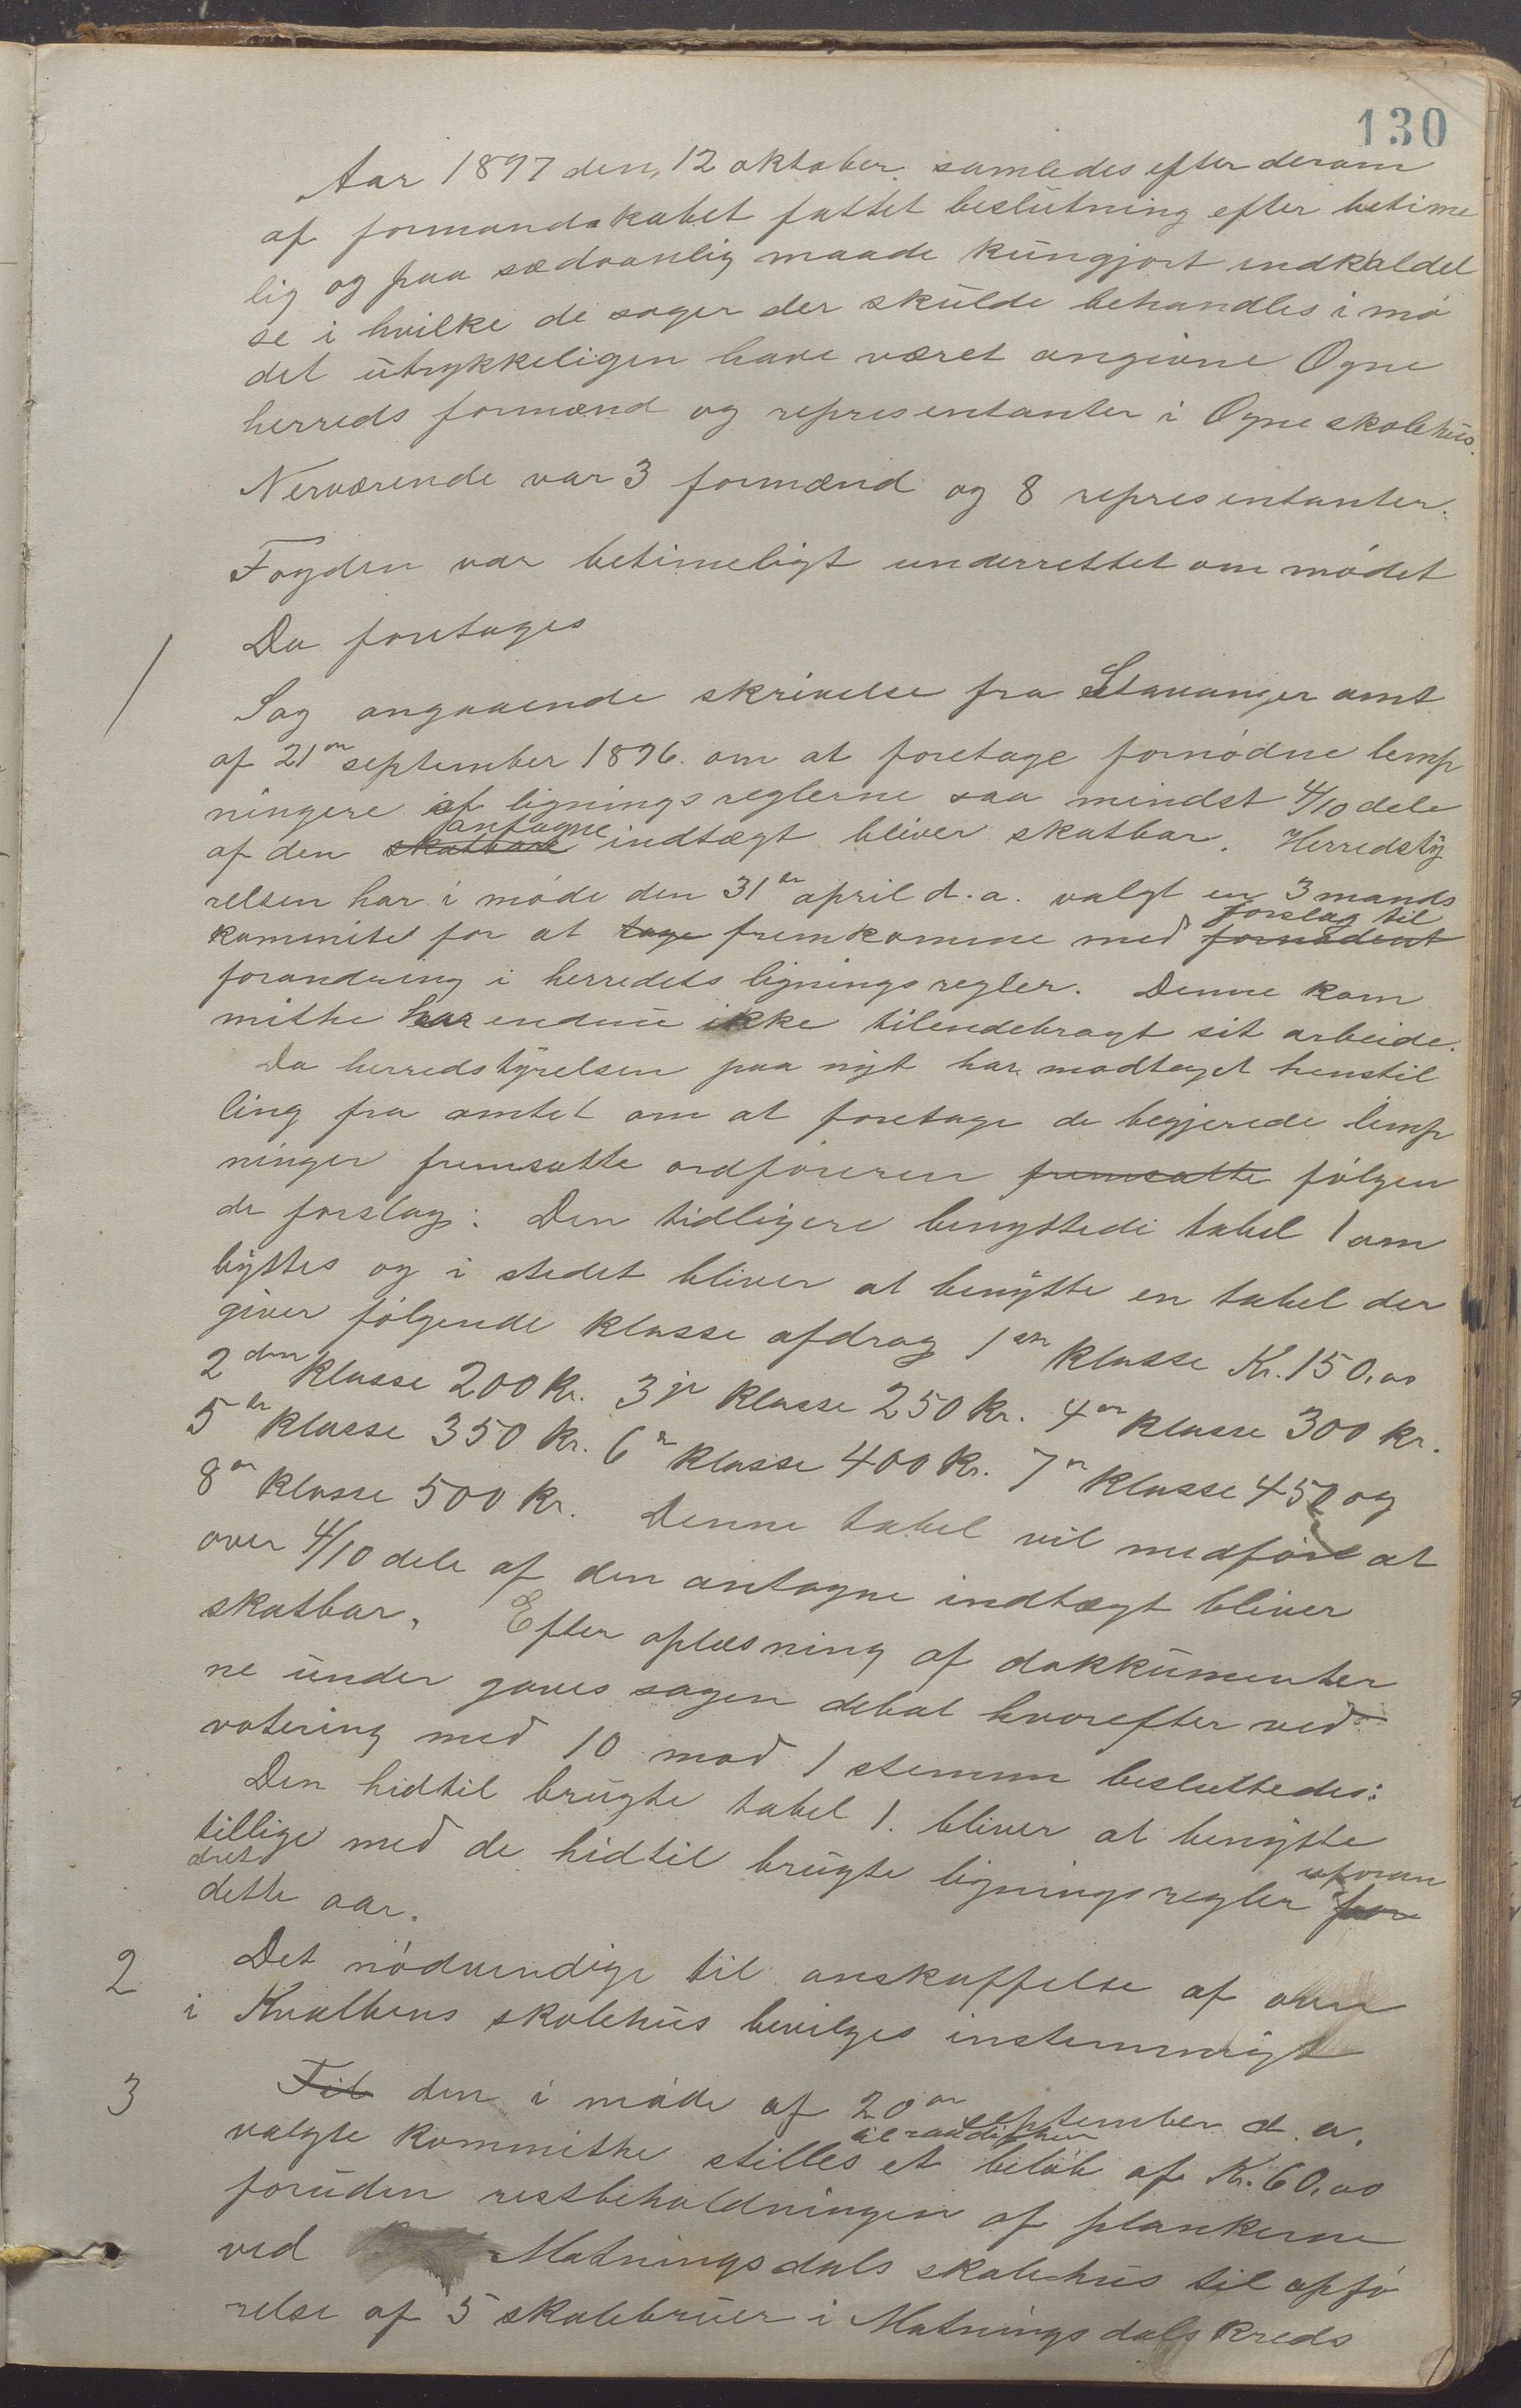 130
Aar 1897 den 12 oktober samledes efter derom
af formandskabet fattet beslutning efter betime
lig og paa sædvanlig maade kungjort indkaldel
se i hvilke de sager der skulde behandles i mö
det utrykkeligen have været angivne Ogne
herreds formænd og representanter i Ogne skolehus.
Nerværende var 3 formænd og 8 representanter.
Fogden var betimeligt underrettet om mödet
Da foretages
1
Sag angaaende skrivelse fra Stavanger amt
af 21de september 1896. om at foretage fornödne lemp
ningere af ligningsreglerne saa mindst 4/10 dele
af den skatbare antagne indtægt bliver skatbar. Herredsty
relsen har i möde den 31te april d.a. valgt en 3 mands
kommite for at tage fremkomme med fornödent forslag til
forandring i herredets ligningsregler. Denne kom
mithe har endnu ikke tilendebragt sit arbeide.
Da herredstyrelsen paa nyt har modtaget henstil
ling fra amtet om at foretage de begjerede lemp
ninger fremsatte ordföreren fremsatte fölgen
de forslag: Den tidligere benyttede tabel 1 om
byttes og i stedet bliver at benytte en tabel der
giver fölgende klasse afdrag 1ste klasse Kr. 150,00
2den klasse 200 Kr. 3je klasse 250 Kr. 4de klasse 300 kr.
5te klasse 350 kr. 6te klasse 400 Kr. 7de klasse 450 og
8de klasse 500 Kr. Denne tabel vil medföre at
over 4/10 dele af den antagne indtægt bliver
skatbar. Efter oplæsning af dokkumenter
ne under gaves sagen debat hvorefter ved
votering med 10 mod 1 stemme besluttedes:
Den hidtil brugte tabel 1. bliver at benytte
tillige med de hidtil brugte ligningsregler for uforan
dret
dette aar.
2
Det nödvendige til anskaffelse af ovn
i Kvalbens skolehus bevilges instemmigt
3
Til den i möde af 20de september d. a.
valgte kommithe stilles til raadighed et belöb af Kr. 60,00
foruden restbeholdningen af plankerne
ved Matningsdals skolehus til opfö
relse af 5 skolebruer i Matningsdals kreds